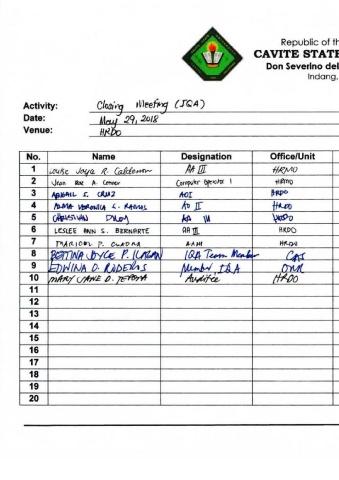 Republic of th
CAVITE STATE
Don Severino del
Indang,
Activity: Closing Meeting (IQA)
Date: May 29, 2018
Venue: HRDO
No. Name Designation Office/Unit
1 Louise Joyce R. Calderon AA III HRMO
2 Jean Computer Operator I HRMO
3 ABIGAIL S. CRUZ AOI HRDO
4 VERONICA L. AO II HRDO
5 CHRISTIAN AA III HRDO
6 LESLEE ANN S. BERNARTE AA III HRDO
7 MARICEL P. HRDO
8 BETTINA JOYCE P. ILAGAN IQA Team Member CAS
9 EDWINA O. RODERAS Member, IQA
10 MARY JANE D. Auditee HRDO
11
12
13
14
15
16
17
18
19
20